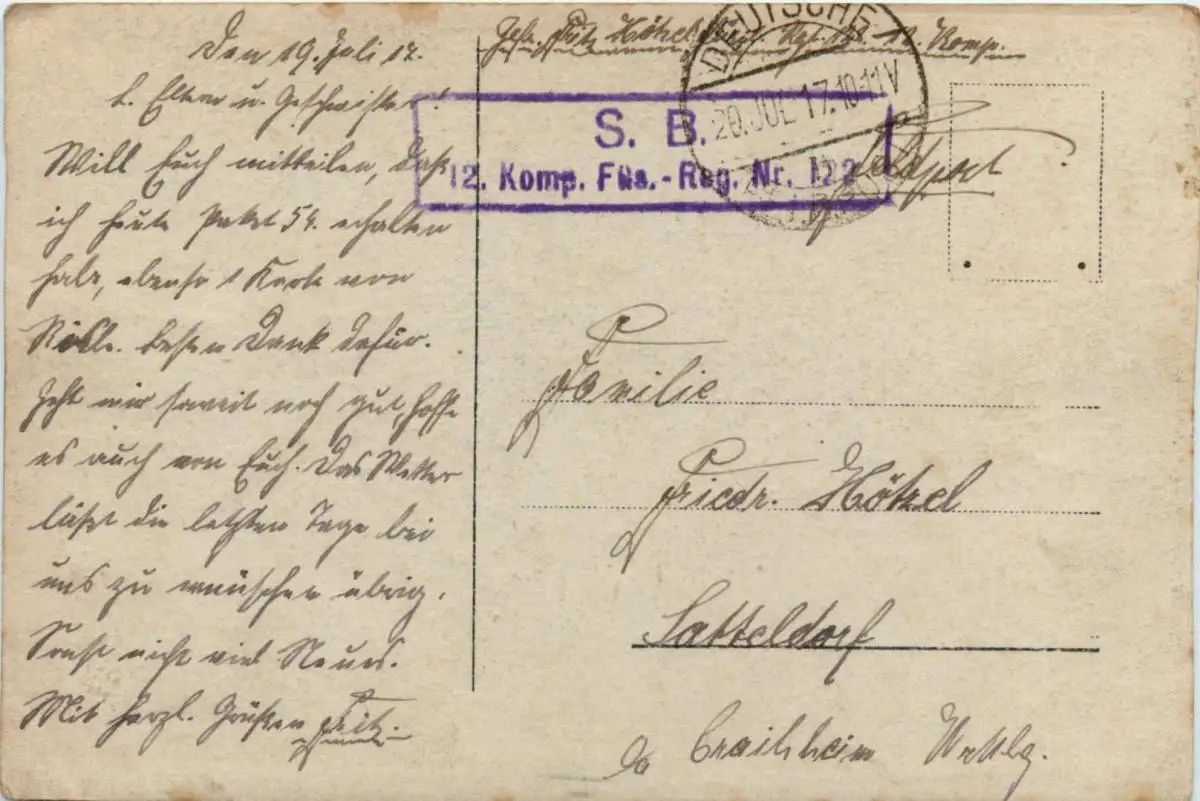 Den 19. Juli 17.
L. Eltern u. Geschwister!
Will Euch mitteilen, daß
ich heute Paket 54. erhalten
habe, ebenso 1 Karte von
besten Dank dafür.
Geht mir soweit noch gut, hoffe
es auch von Euch. Das Wetter
läßt die letzten Tage bei
uns zu wünschen übrig.
Sonst nicht viel Neues.
Mit herzl. Grüßen Fritz.
Fritz Hötzel 12. Komp.
DEUTSCHE
20. JUL 17. 10-11V
S. B.
12. Komp. Füs.-Reg. Nr. 122
Feldpost
Familie
Friedr. Hötzel
Satteldorf
Crailsheim Wrttbg.